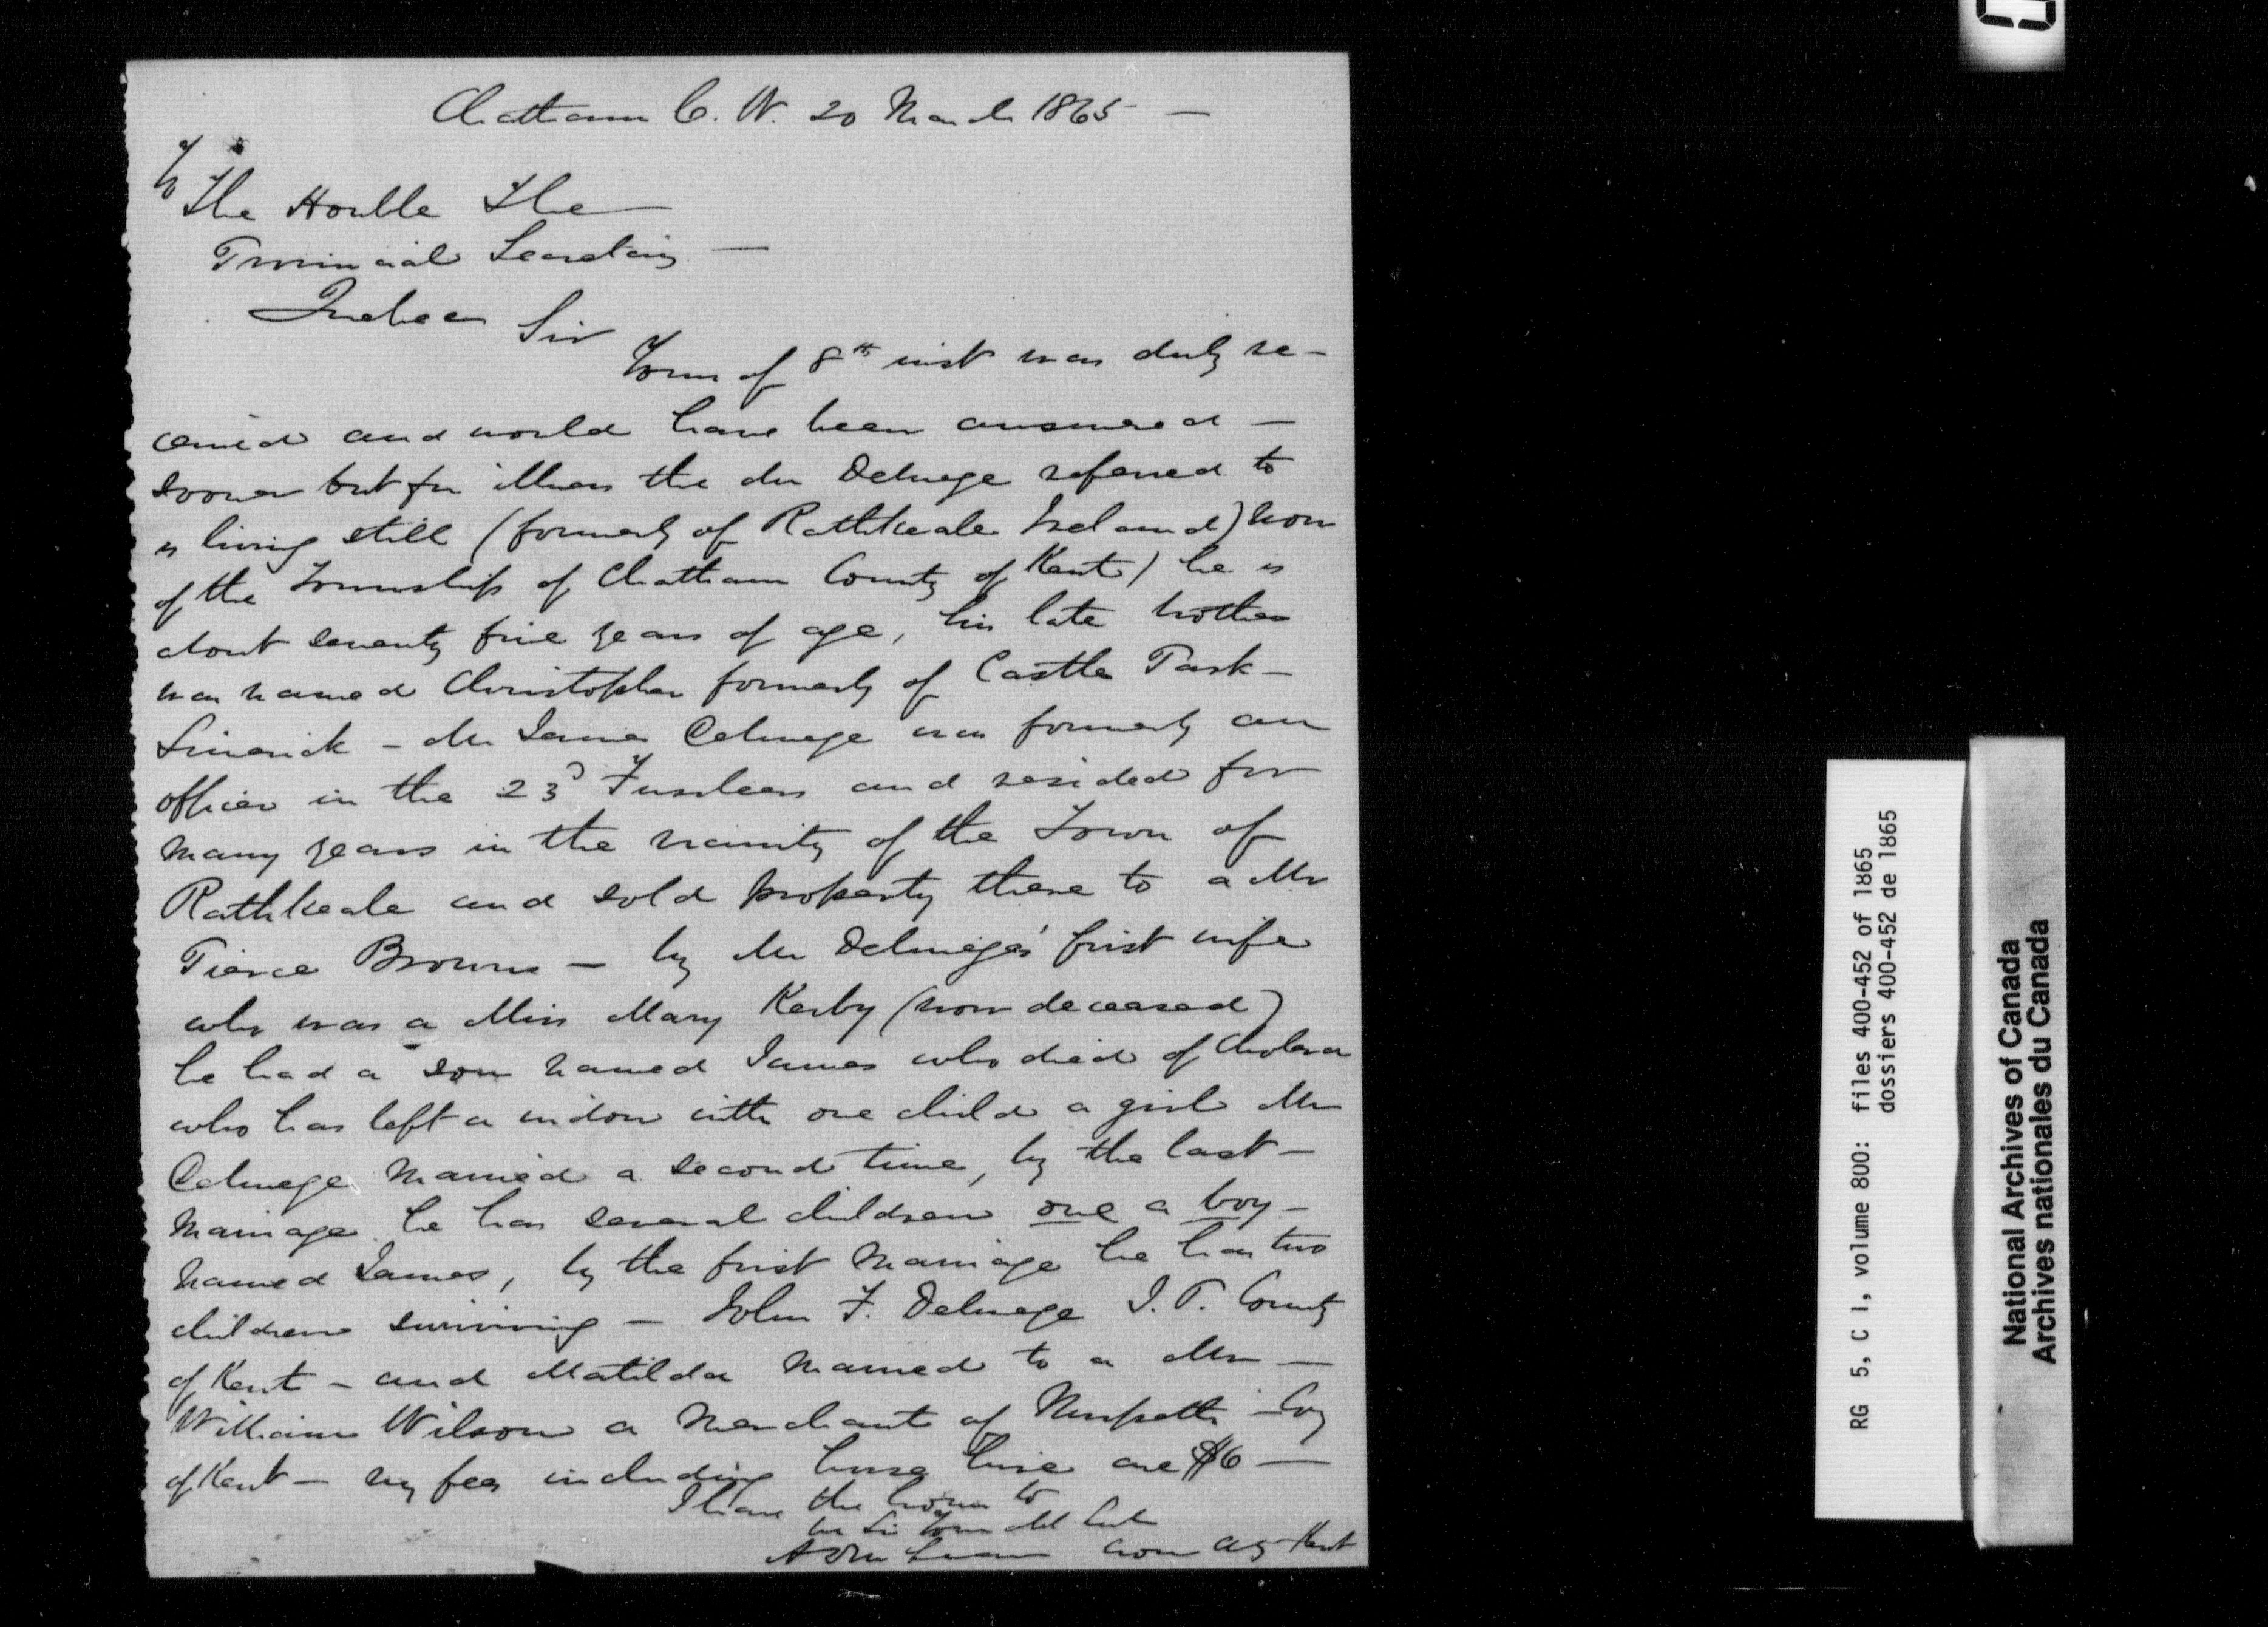 Chatham C. W. 20 March 1865 —
To
The Honble The
Provincial Secretary —
Quebec
Sir
Yours of 8th inst was duly re-
ceived and would have been answered —
sooner but for illness the Mr Delmege referred to
is living still (formerly of Rathkeale Ireland) now
of the Township of Chatham County of Kent) he is
about seventy five years of age, his late brother
was named Christopher formerly of Castle Park —
Limerick — Mr James Delmege was formerly an
officer in the 23d Fusileers and resided for
many years in the vicinity of the Town of
Rathkeale and sold property there to a Mr
Pierce Browne — by Mr Delmeges' first wife
who was a Miss Mary Kerby (now deceased)
he had a son named James who died of Cholera
who has left a widow with one child a girl Mr
Delmege married a second time, by the last —
marriage he has several children one a boy —
named James, by the first marriage he has two
children surviving — John F. Delmege J. P. County
of Kent — and Matilda married to a Mr —
William Wilson a merchant of Morpeth — Coy
of Kent — my fees including horse hire are $6 —
I have the honor to
be Sir your obt Svt
Crown Aty Kent
RG 5, C 1, volume 800: files 400-452 of 1865
dossiers 400-452 de 1865
National Archives of Canada
Archives nationales du Canada